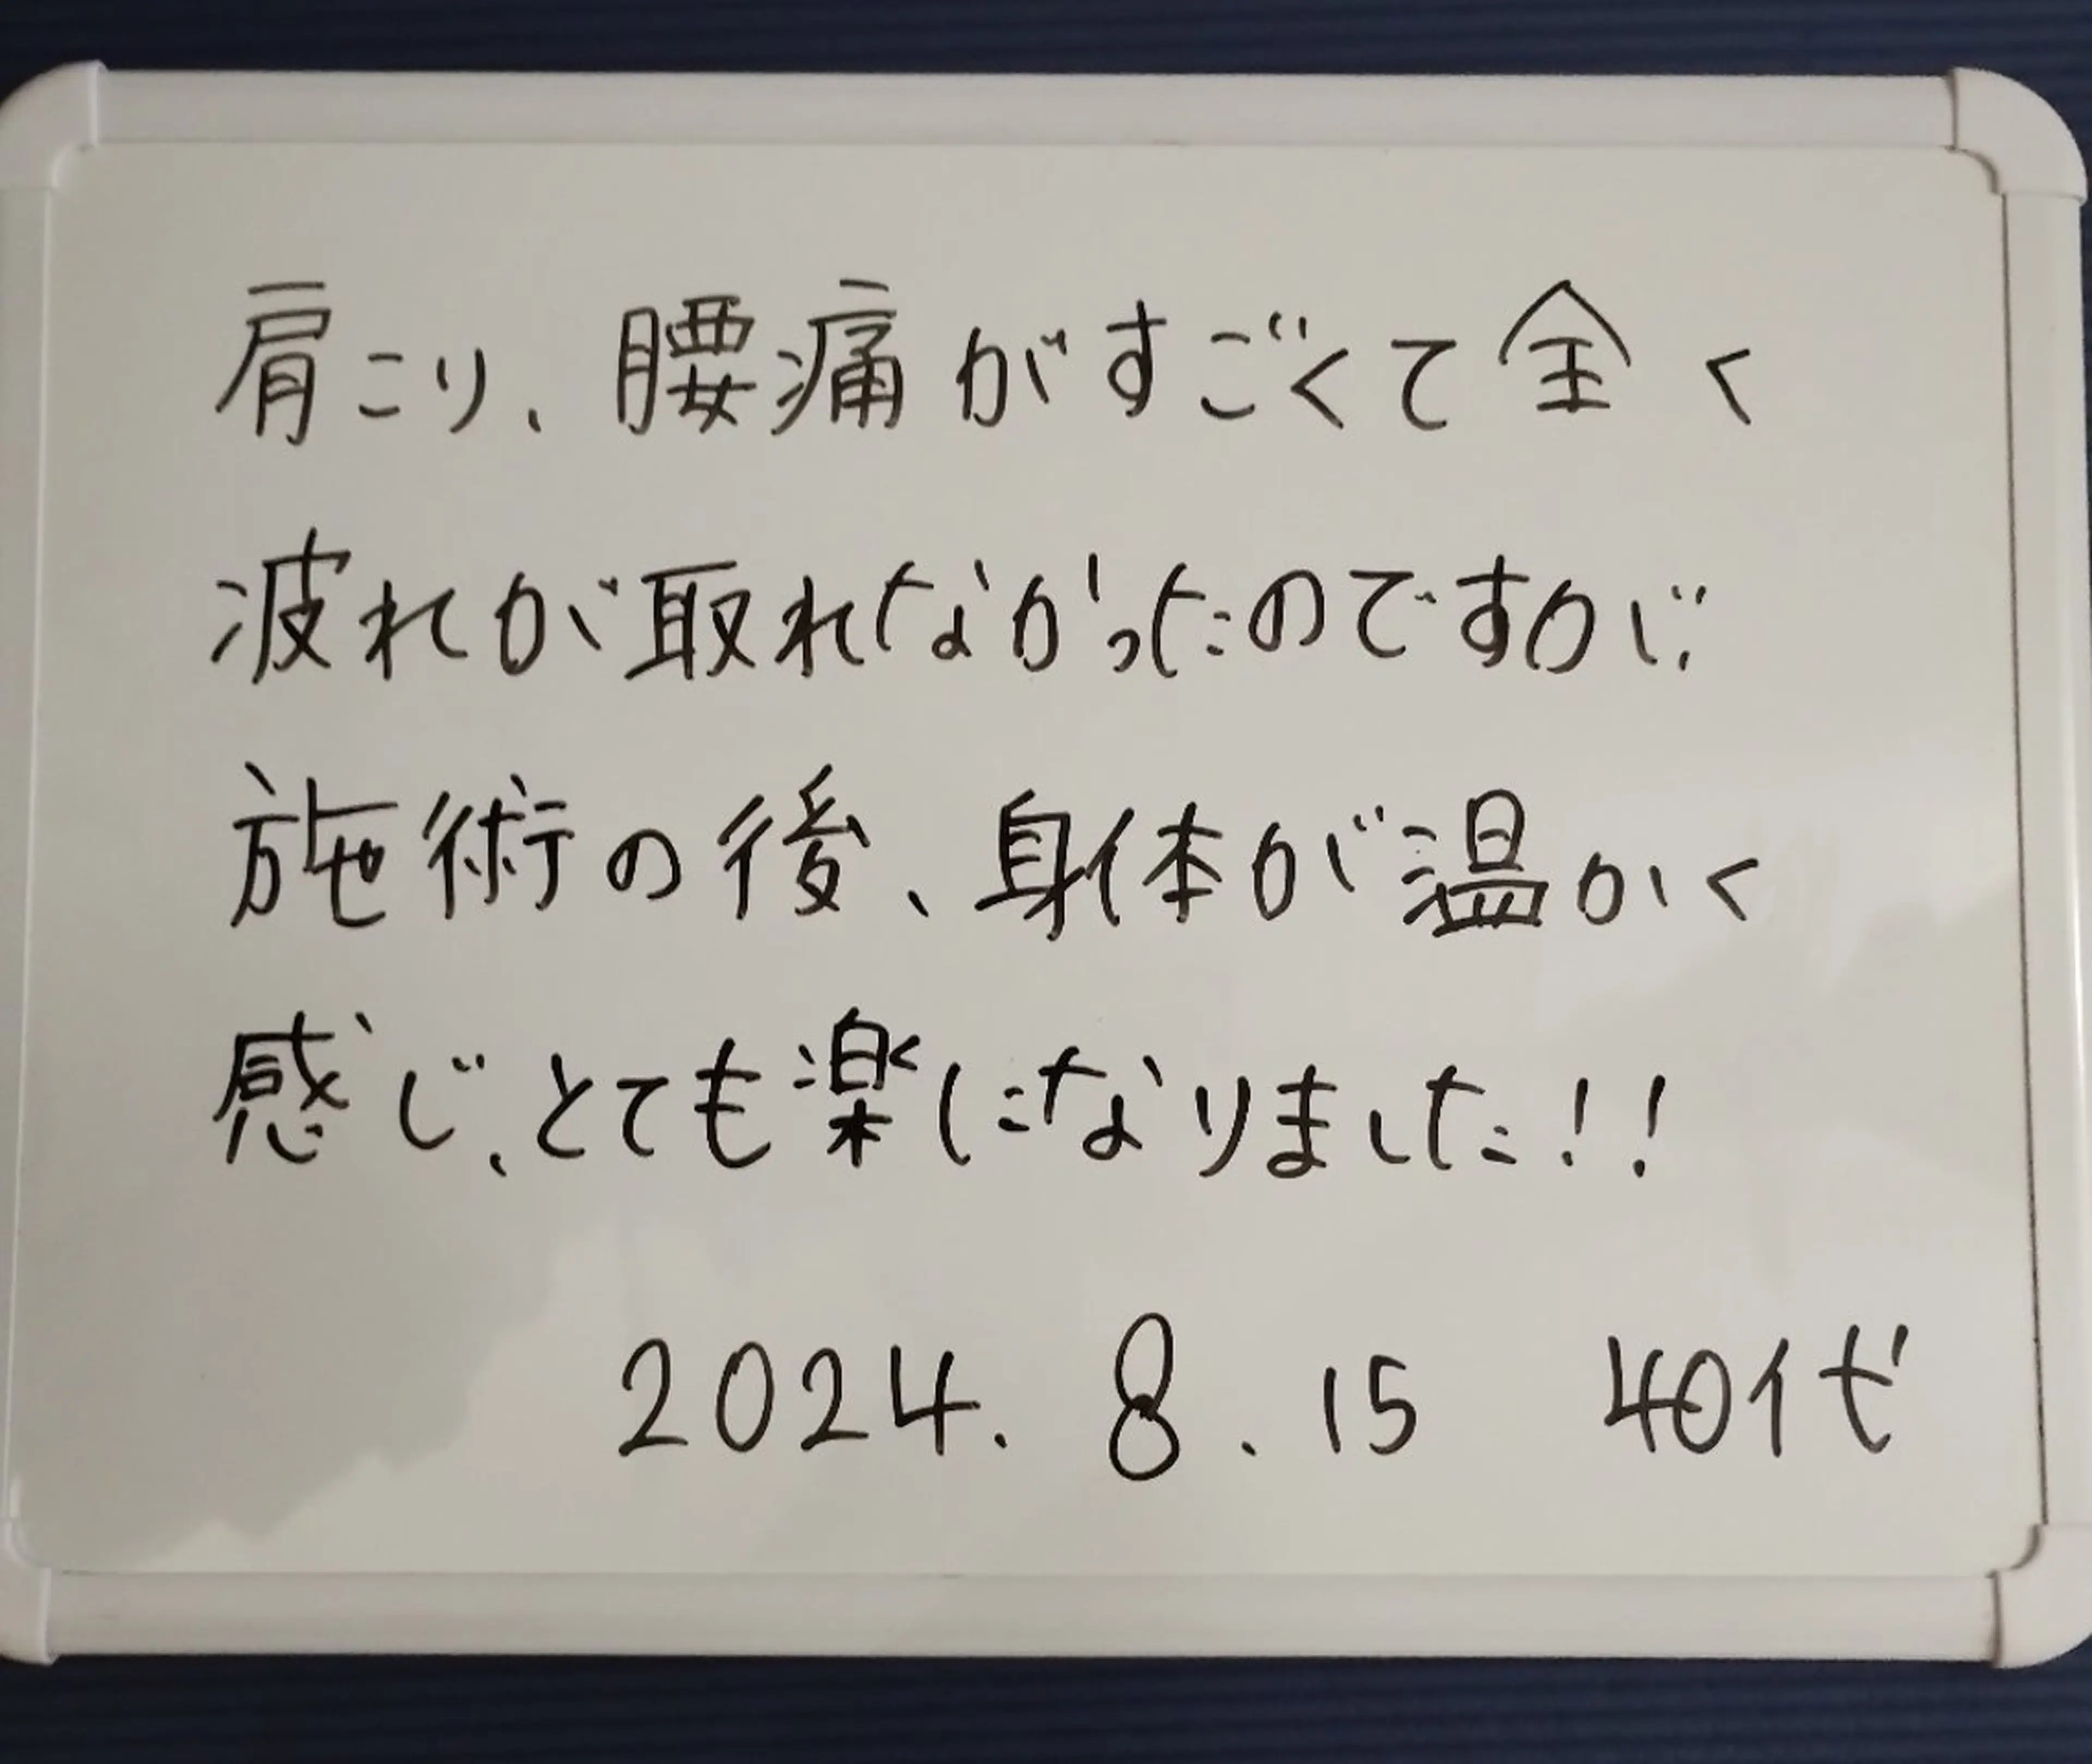 肩こり、腰痛がすごくて全く
疲れが取れなかったのですが、
施術の後、身体が温かく
感じ、とても楽になりました!!
2024. 8. 15 40代